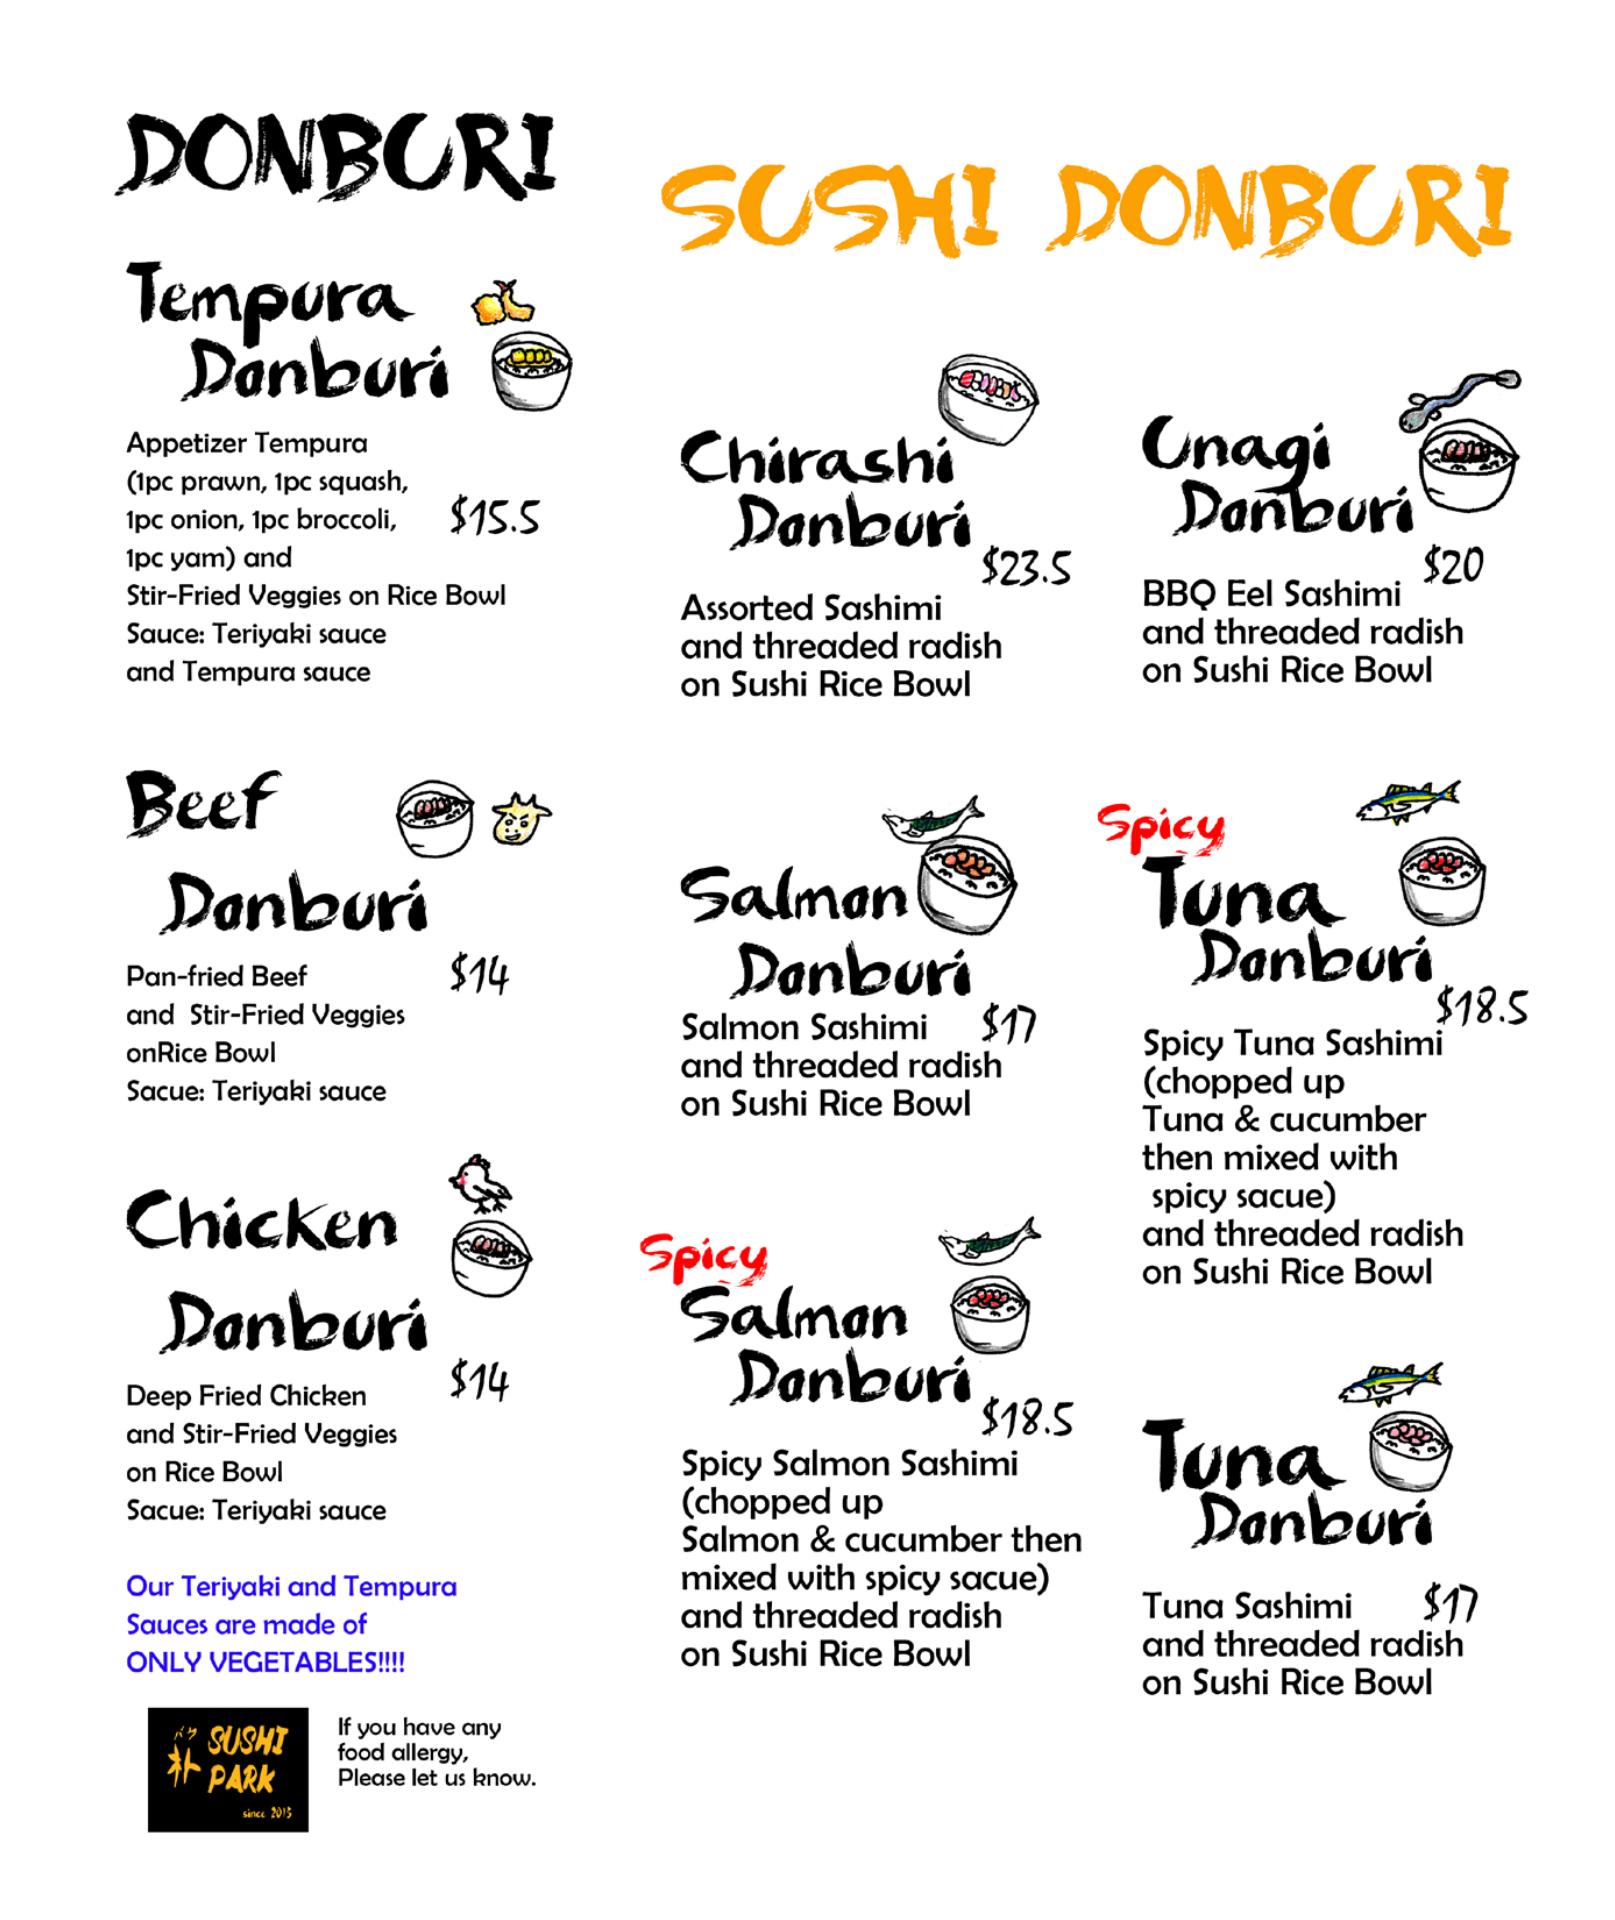 DONBURI
Tempura
Donburi
Appetizer Tempura
(1pc prawn, 1pc squash,
1pc onion, 1pc broccoli,
$15.5
1pc yam) and
Stir-Fried Veggies on Rice Bowl
Sauce: Teriyaki sauce
and Tempura sauce
Beef
Donburi
Pan-fried Beef
$14
and Stir-Fried Veggies
onRice Bowl
Sacue: Teriyaki sauce
Chicken
Donburi
$14
Deep Fried Chicken
and Stir-Fried Veggies
on Rice Bowl
Sacue: Teriyaki sauce
Our Teriyaki and Tempura
Sauces are made of
ONLY VEGETABLES!!!!
パク
朴
SUSHI
PARK
since 2013
If you have any
food allergy,
Please let us know.
SUSHI DONBURI
Chirashi
Donburi
$23.5
Assorted Sashimi
and threaded radish
on Sushi Rice Bowl
Salmon
Donburi
Salmon Sashimi
$17
and threaded radish
on Sushi Rice Bowl
Spicy
Salmon
Donburi
$18.5
Spicy Salmon Sashimi
(chopped up
Salmon & cucumber then
mixed with spicy sacue)
and threaded radish
on Sushi Rice Bowl
Unagi
Donburi
$20
BBQ Eel Sashimi
and threaded radish
on Sushi Rice Bowl
Spicy
Tuna
Donburi
$18.5
Spicy Tuna Sashimi
(chopped up
Tuna & cucumber
then mixed with
spicy sacue)
and threaded radish
on Sushi Rice Bowl
Tuna
Donburi
Tuna Sashimi
$17
and threaded radish
on Sushi Rice Bowl